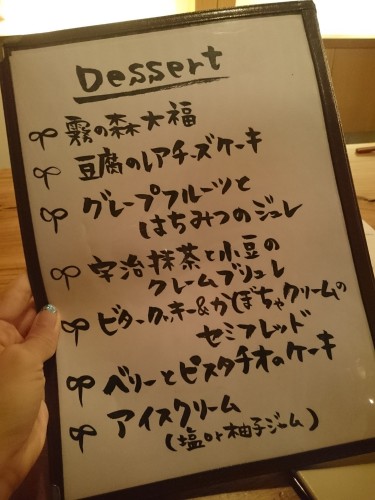 Dessert
霧の森大福
豆腐のレアチーズケーキ
グレープフルーツと
はちみつのジュレ
宇治抹茶と小豆の
クレームブリュレ
ビタークッキー&かぼちゃクリームの
セミフレッド
ベリーとピスタチオのケーキ
アイスクリーム
(塩or柚子ジャーム)